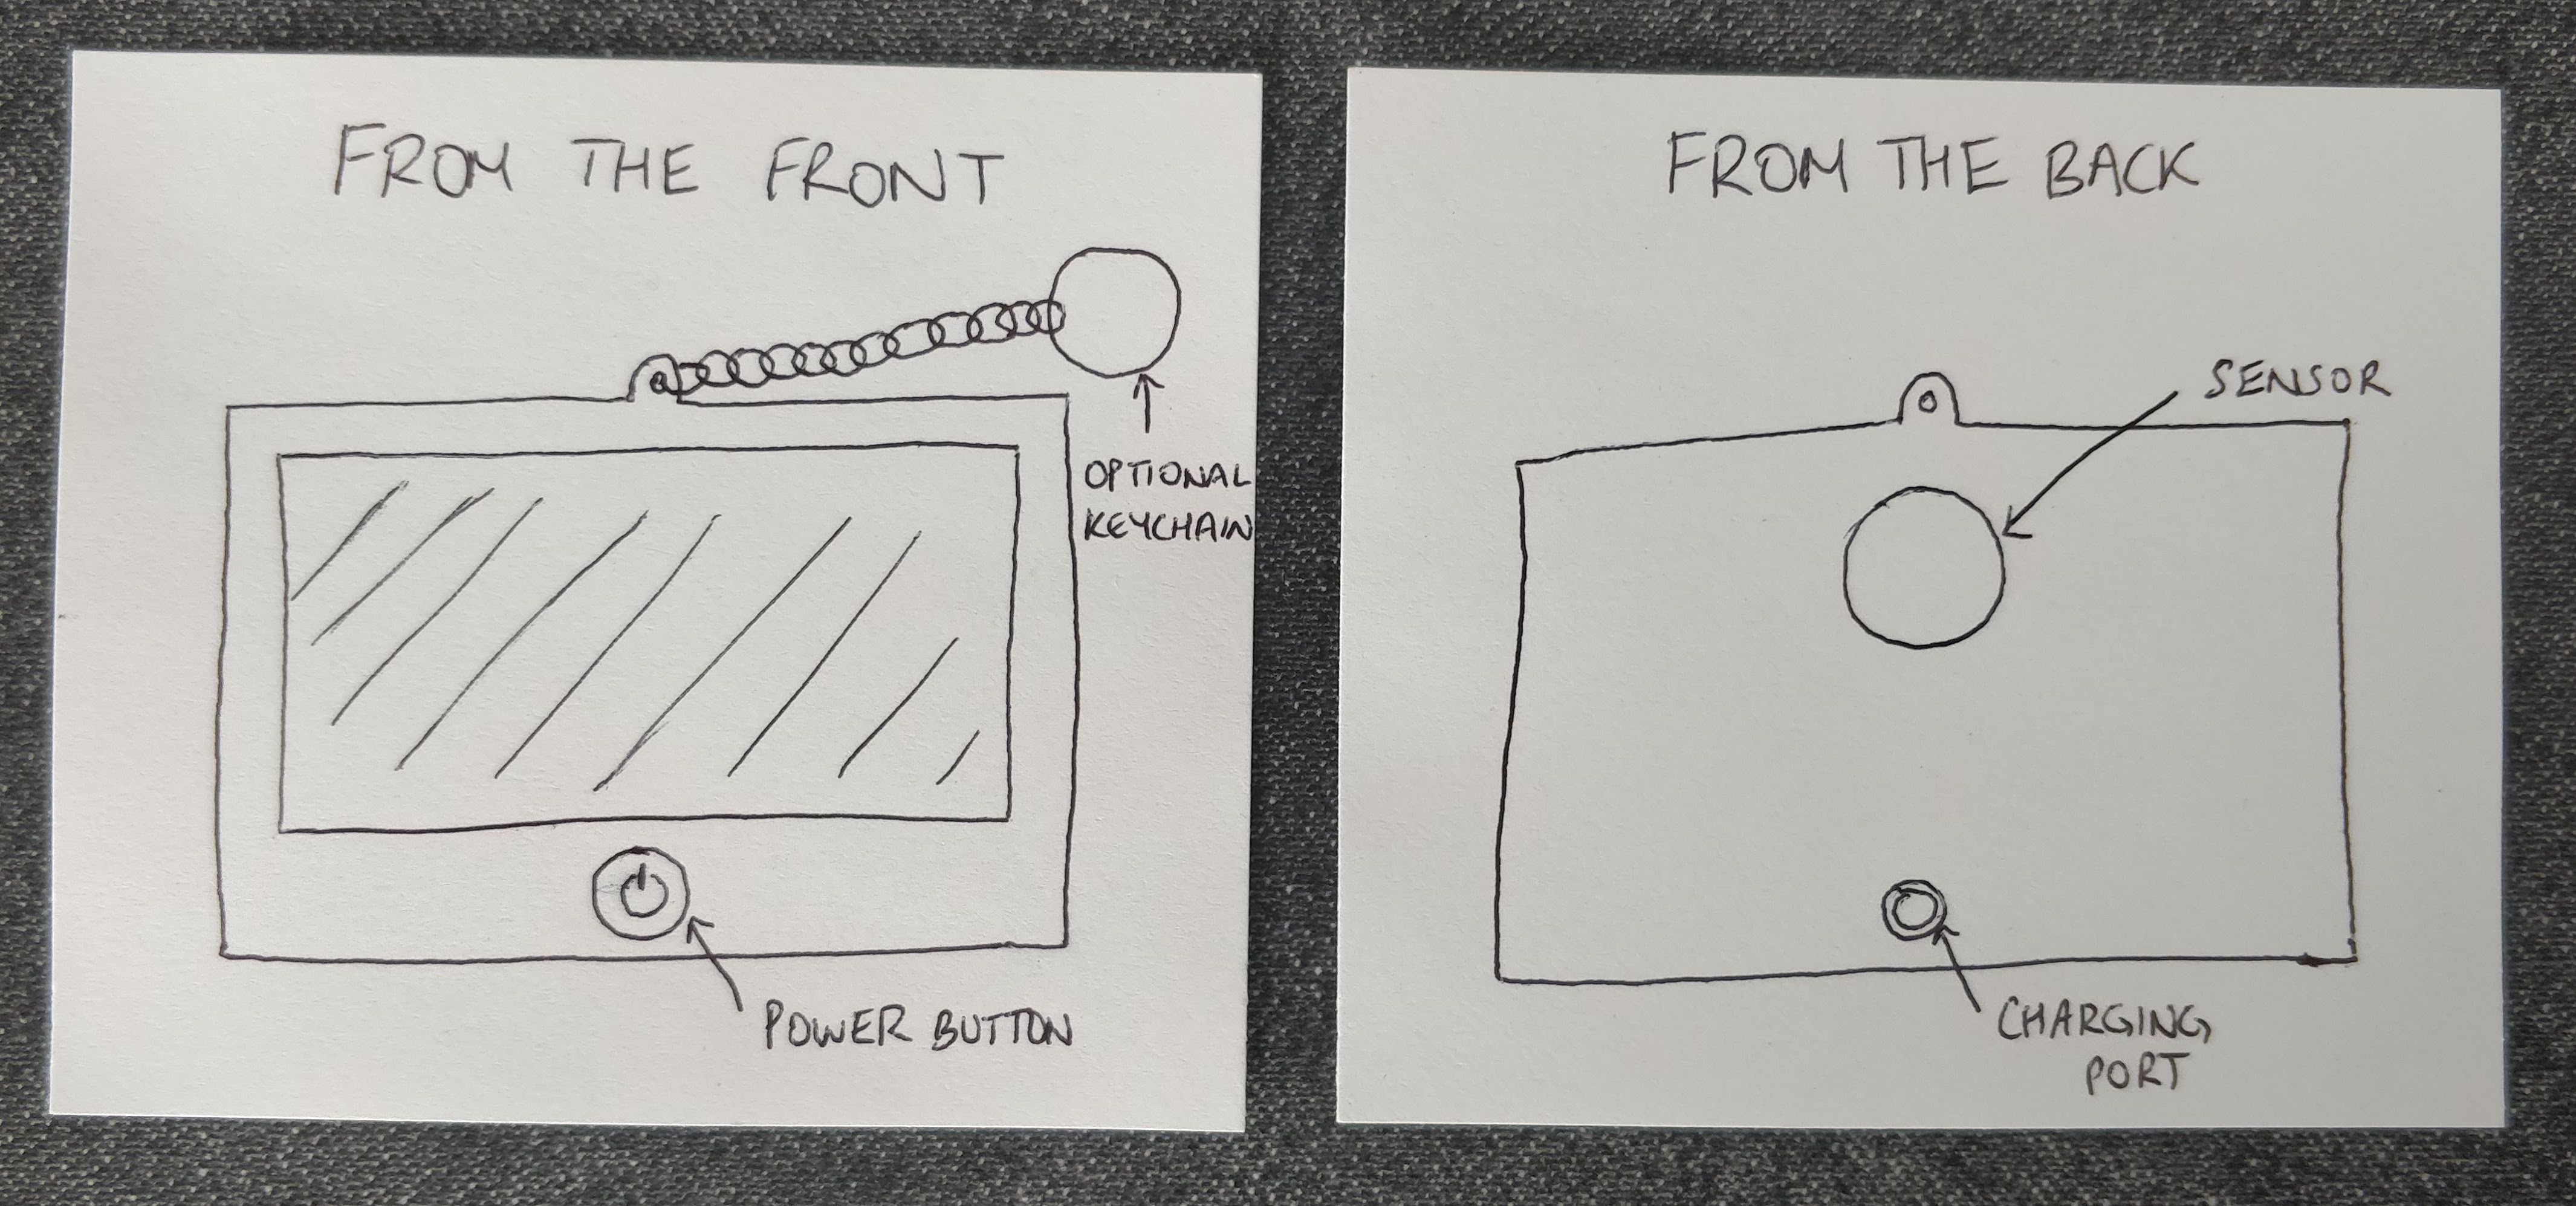 FROM THE FRONT
OPTIONAL
KEYCHAIN
POWER BUTTON
FROM THE BACK
SENSOR
CHARGING
PORT